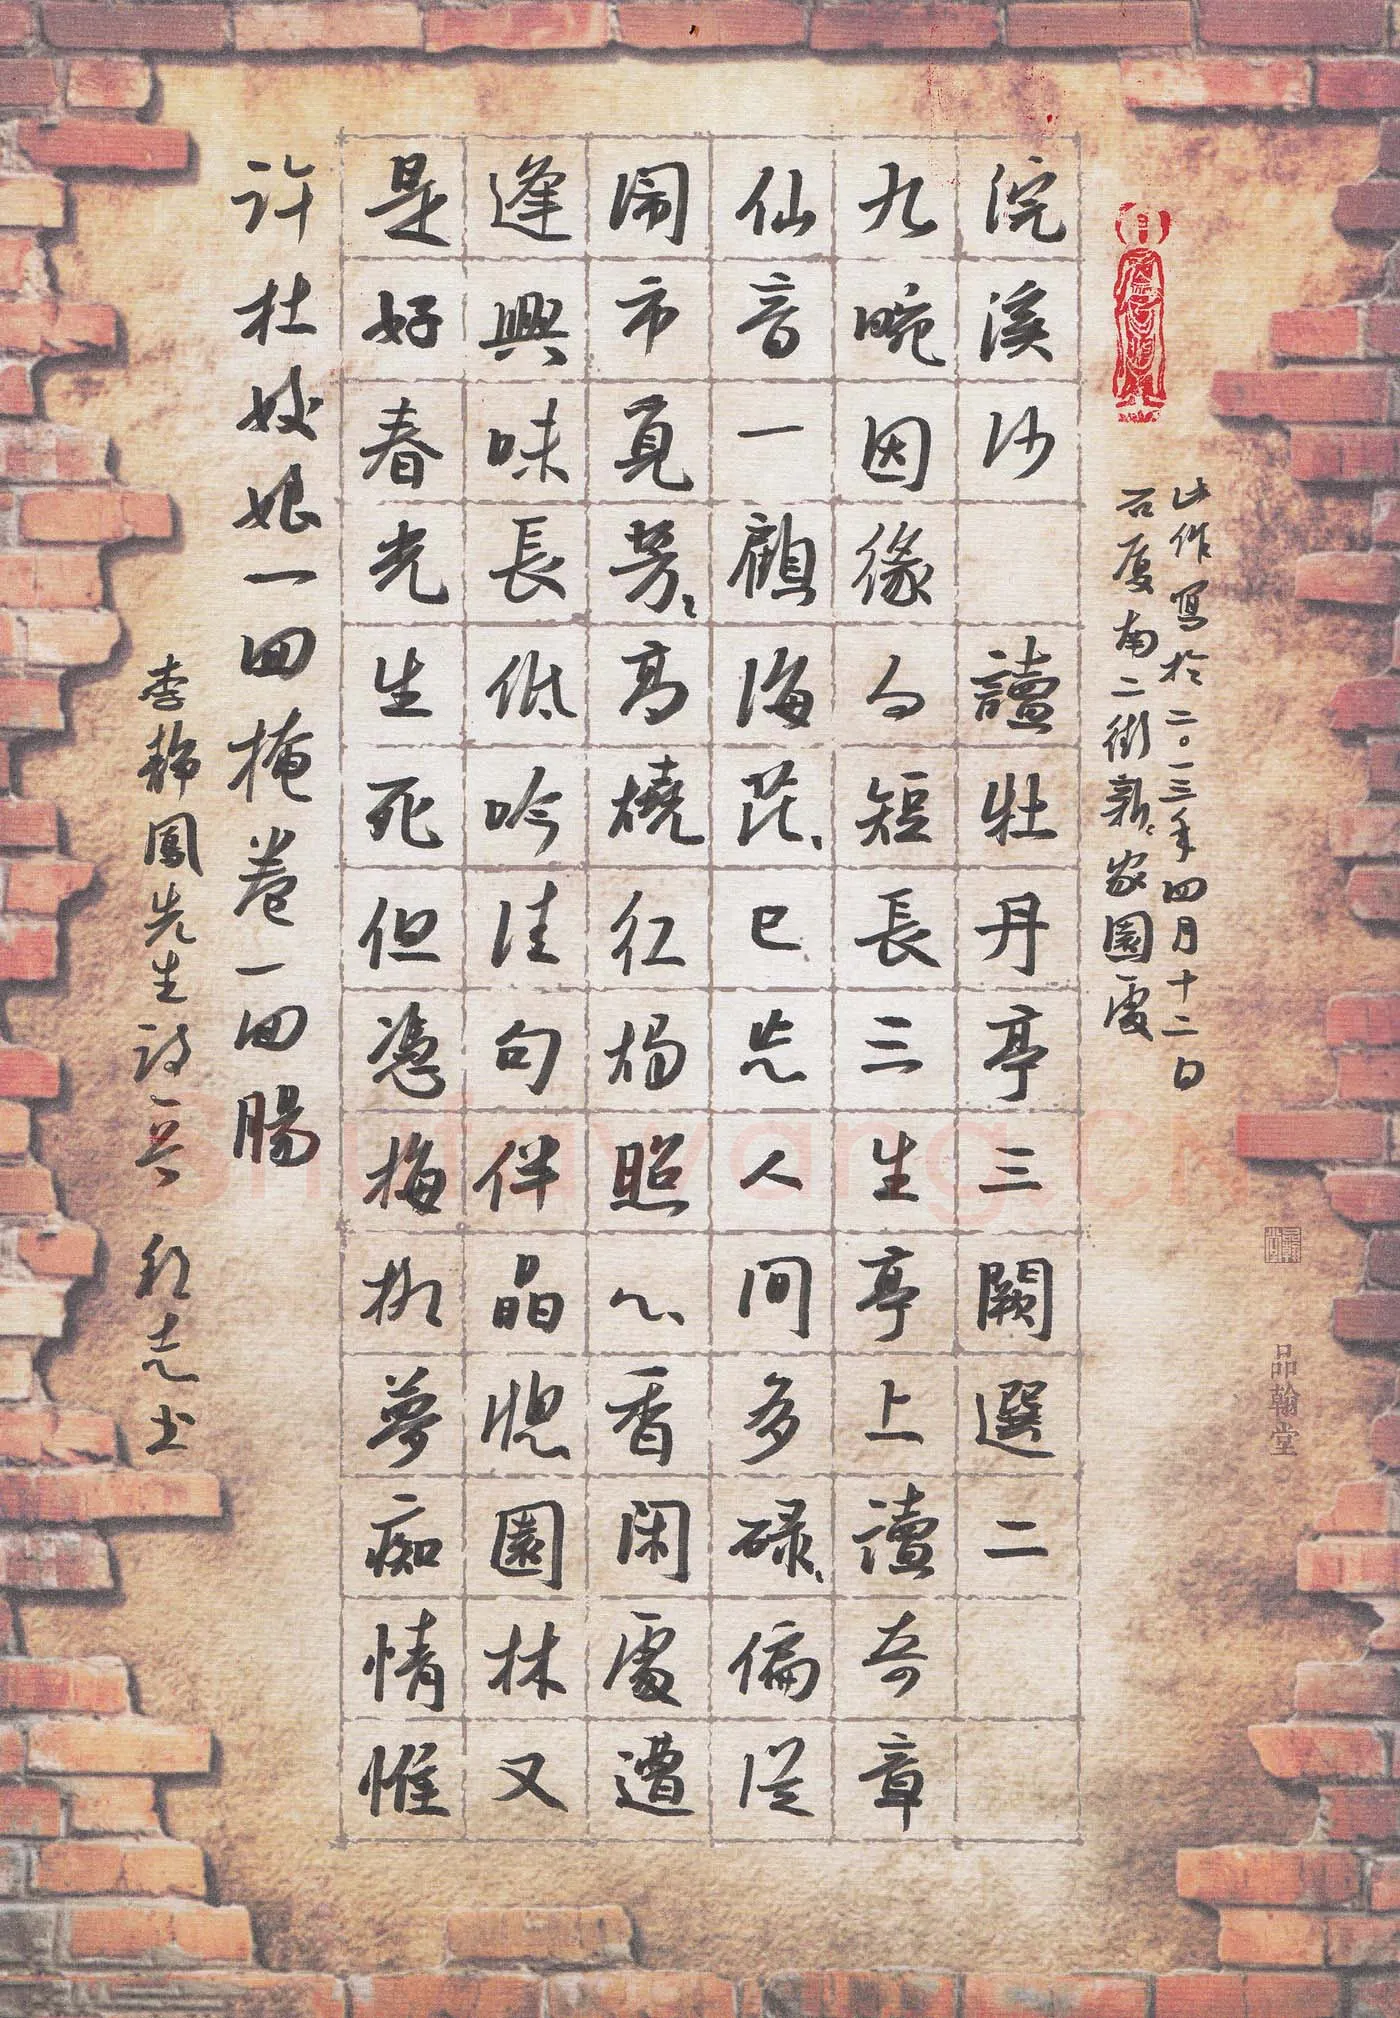 此作寫於二〇一三年四月十二日
石厦南二街新々家園處
浣溪沙 讀牡丹亭三闋選二
九畹因緣勾短長三生亭上讀奇章
仙音一顧海茫々已人間多碌々偏從
鬧市覓芳々高燒紅燭照心香閑處遭
逢興味長低吟佳句伴晶幌園林又
是好春光生死但憑梅柳夢痴情惟
許杜姣娘一回掩卷一回腸
李靜鳳先生詩 志士
品翰堂
Shufawang.CN